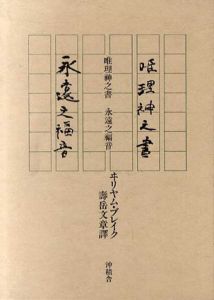 唯理神之書
永遠之福音
唯理神之書　永遠之福音
ヰリヤム・ブレイク
壽岳文章譯
沖積舎